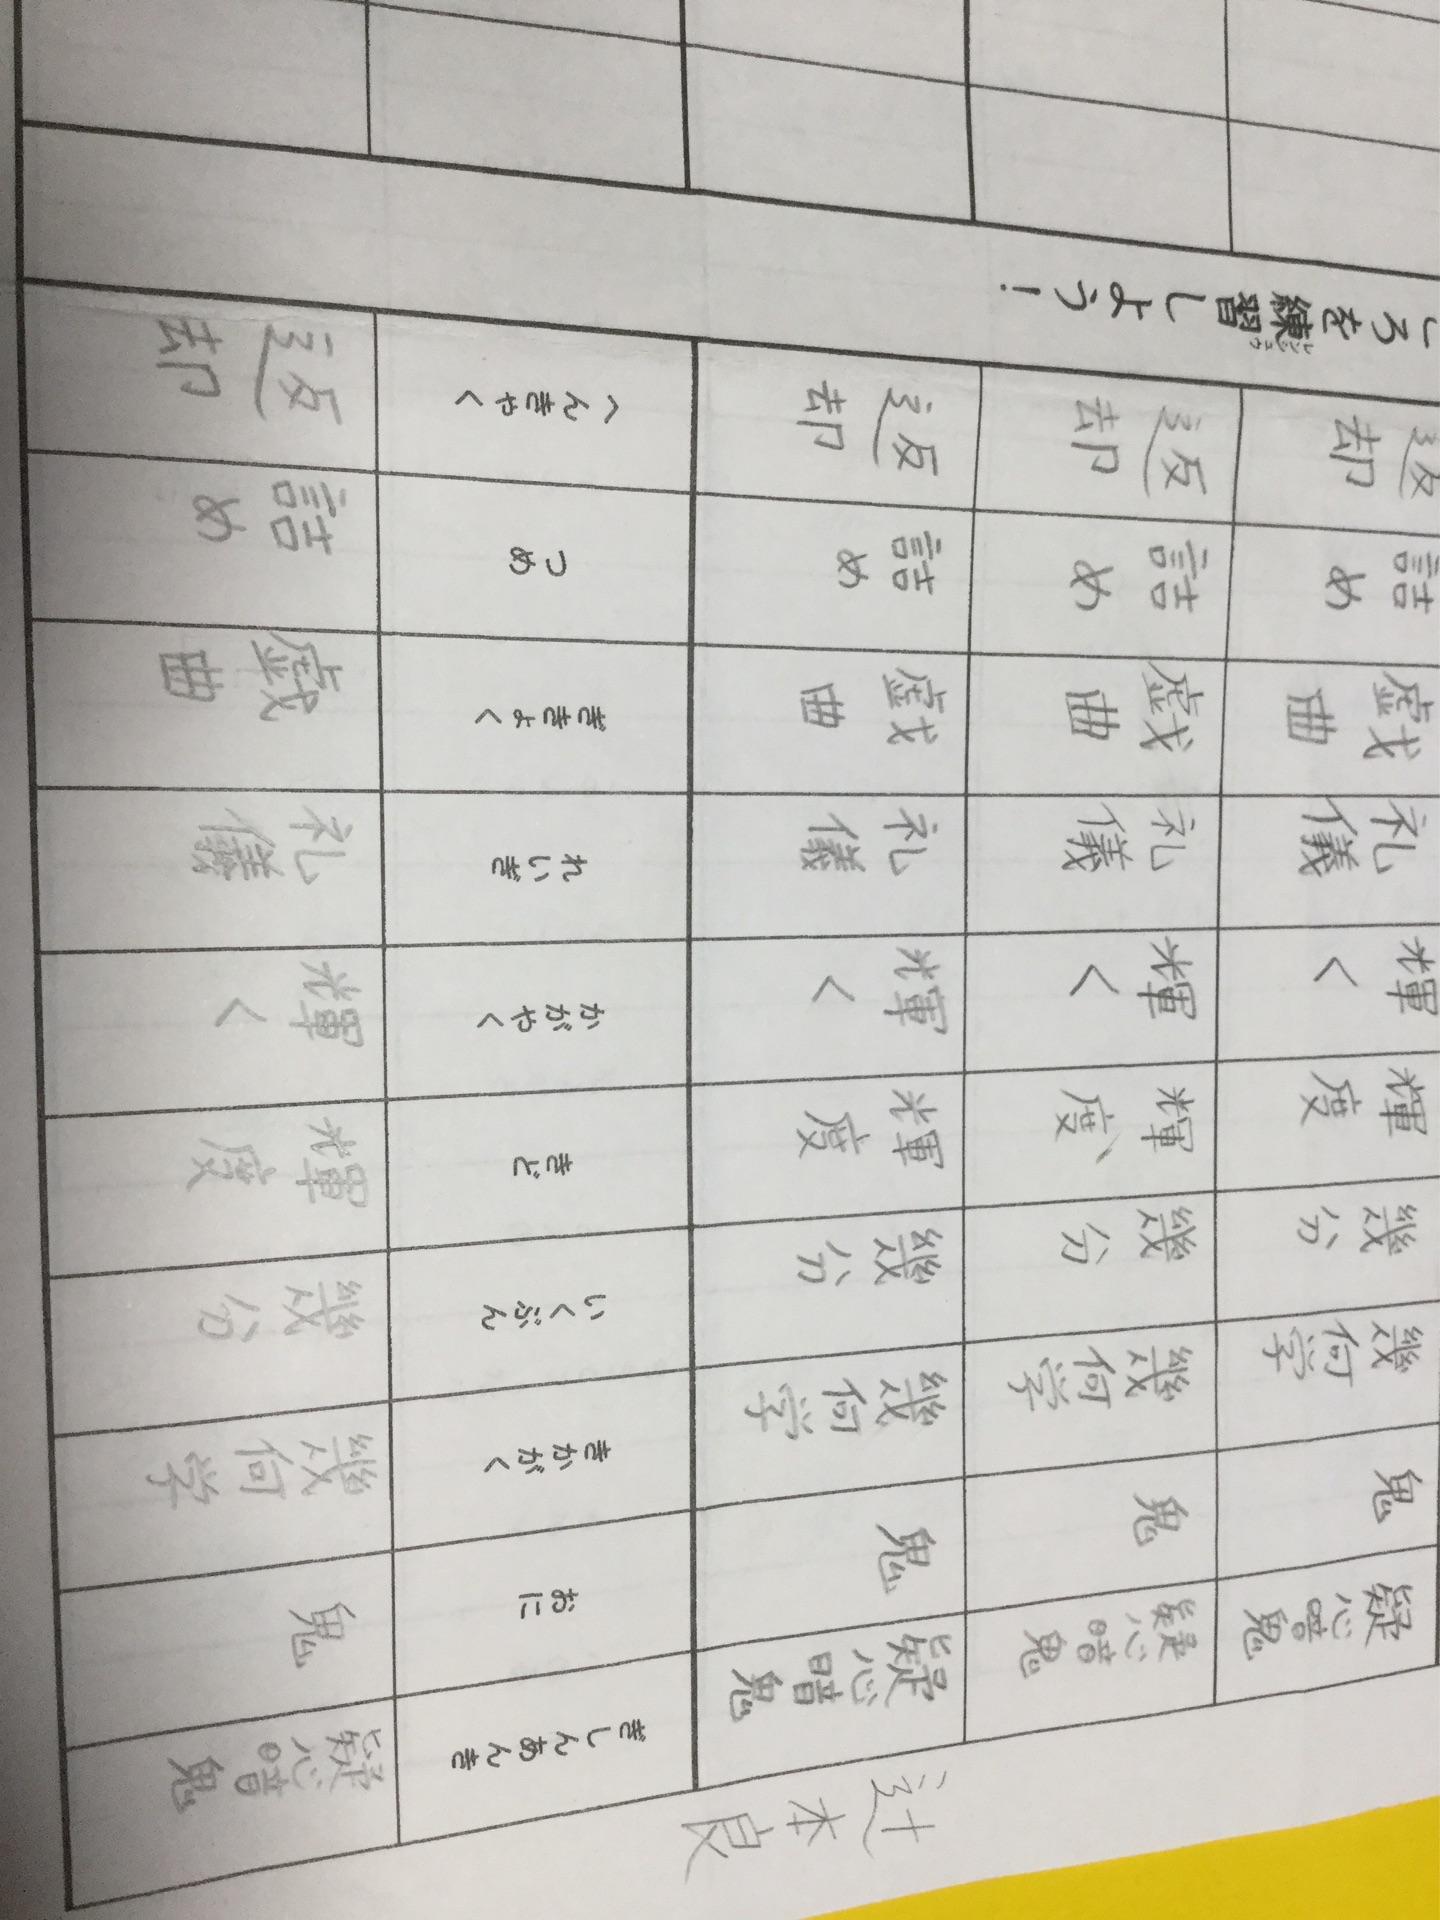 辻本良
疑心暗鬼
疑心暗鬼
疑心暗鬼
ぎしんあんき
疑心暗鬼
鬼
鬼
鬼
おに
鬼
幾何学
幾何学
幾何学
きかがく
幾何学
幾分
幾分
幾分
いくぶん
幾分
輝度
輝度
輝度
きど
輝度
輝く
輝く
輝く
かがやく
輝く
礼儀
礼儀
礼儀
れいぎ
礼儀
戯曲
戯曲
戯曲
ぎきょく
戯曲
詰め
詰め
詰め
つめ
詰め
返却
返却
返却
へんきゃく
返却
ころを練習しよう！
レンシュウ